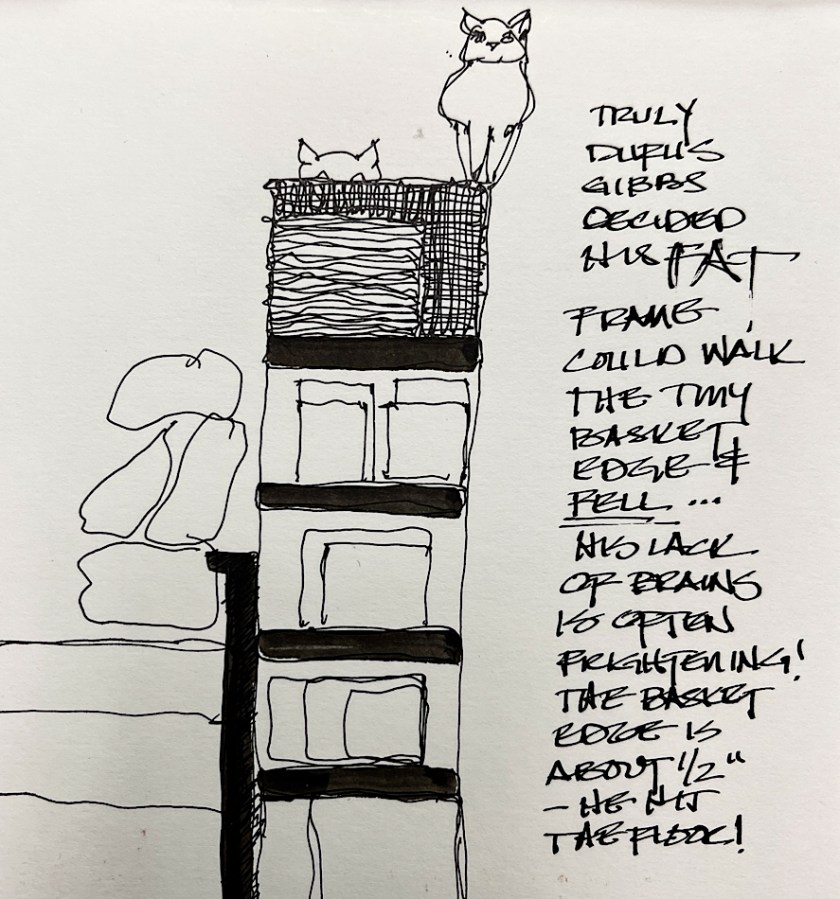 TRULY
DUFUS
GIBBS
DECIDED
HIS FAT
FRAME
COULD WALK
THE TINY
BASKET
EDGE &
FELL ...
HIS LACK
OF BRAINS
IS OFTEN
FRIGHTENING!
THE BASKET
EDGE IS
ABOUT 1/2"
- HE HIT
THE FLOOR!